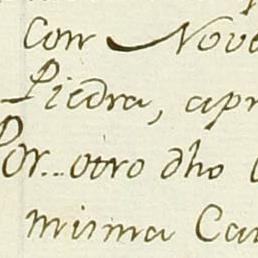 con Nove
Piedra, apr
Por...otro dho
misma Ca